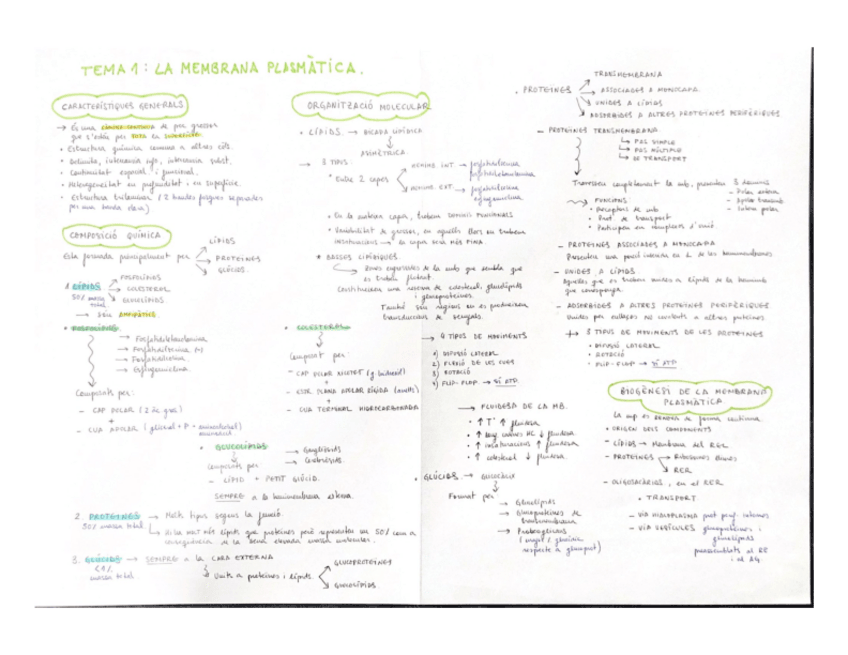 TEMA 1: LA MEMBRANA PLASMÀTICA.
CARACTERÍSTIQUES GENERALS
→ És una làmina contínua de poc grossor
que s'estén per tota la superfície.
• Estructura química comuna a altres cèls.
• Continuïtat espacial i funcional.
• Heterogeneïtat en profunditat i en superfície.
• Estructura trilaminar (2 bandes fosques separades
per una banda clara)
COMPOSICIÓ QUÍMICA
Està formada principalment per
LÍPIDS
PROTEÏNES
GLÚCIDS.
1. LÍPIDS
50% massa
total
FOSFOLÍPIDS
COLESTEROL
GLUCOLÍPIDS
→ Són AMFIPÀTICS.
• FOSFOLÍPIDS
→ Fosfatidiletanolamina
→ Fosfatidilserina (-)
→ Fosfatidilcolina.
→ Esfingomielina.
Composats per:
- CAP POLAR (2 àc. gras)
+
- CUA APOLAR (glicerol + P + aminoalcohol)
aminoàcid
• GLUCOLÍPIDS
→ Gangliòsids
→ Cerebròsids.
Composats per
- LÍPID + PETIT GLÚCID.
SEMPRE a la hemimembrana externa.
2. PROTEÏNES
50% massa total
→ Molts tipus segons la funció.
→ Hi ha molt més lípids que proteïnes però representen un 50% com a
conseqüència de la seva elevada massa molecular.
3. GLÚCIDS → SEMPRE a la CARA EXTERNA
<1%
massa total.
Units a proteïnes i lípids.
GLUCOPROTEÏNES
GLUCOLÍPIDS.
ORGANITZACIÓ MOLECULAR
• LÍPIDS. → BICAPA LIPÍDICA
ASIMÈTRICA.
→ 2 TIPUS:
• Entre 2 capes
HEMIMB. INT → fosfatidilserina
fosfatidiletanolamina
HEMIMB. EXT → fosfatidilcolina
esfingomielina.
• En la mateixa capa, trobem DOMINIS FUNCIONALS
• Variabilitat de grossor, en aquells llocs on trobem
insaturacions → la capa serà MÉS FINA.
* BASSES LIPÍDIQUES
Zones especials de la mb que sembla que
es troben flotant.
Constitueixen una reserva de colesterol, glucolípids
i glucoproteïnes.
També són regions on es produeixen
transduccions de senyals.
• COLESTEROL
Composat per:
- CAP POLAR NEUTRE (g. hidroxil)
+
- ESTR. PLANA APOLAR RÍGIDA (anells)
+
- CUA TERMINAL HIDROCARBONADA
→ 4 TIPUS DE MOVIMENTS
1) DIFUSIÓ LATERAL
2) FLEXIÓ DE LES CUES
3) ROTACIÓ
4) FLIP-FLAP → SÍ ATP.
→ FLUIDESA DE LA MB.
• ↑ Tª ↑ fluïdesa
• ↑ long. cadenes HC ↓ fluïdesa
• ↑ insaturacions ↑ fluïdesa
• ↑ colesterol ↓ fluïdesa.
• GLÚCIDS → GLUCOCÀLIX
Format per
→ Glucolípids
→ Glucoproteïnes de
transmembrana
→ Proteoglicans
• PROTEÏNES
TRANSMEMBRANA
ASSOCIADES A MONOCAPA.
UNIDES A LÍPIDS
ADSORBIDES A ALTRES PROTEÏNES PERIFÈRIQUES
- PROTEÏNES TRANSMEMBRANA
PAS SIMPLE
PAS MÚLTIPLE
DE TRANSPORT
Travessen completament la mb, presenten 3 dominis
FUNCIONS
• Receptors de mb
• Prot. de transport
• Participen en complexos d'unió
- PROTEÏNES ASSOCIADES A MONOCAPA
Presenten una porció inserida en 1 de les hemimembranes
- UNIDES A LÍPIDS
Aquelles que es troben unides a lípids de la hemimb
que correspongui.
- ADSORBIDES A ALTRES PROTEÏNES PERIFÈRIQUES
Unides per enllaços no covalents a altres proteïnes
→ 3 TIPUS DE MOVIMENTS DE LES PROTEÏNES
• DIFUSIÓ LATERAL
• ROTACIÓ
• FLIP-FLAP → SÍ ATP.
BIOGÈNESI DE LA MEMBRANA
PLASMÀTICA.
La mp es renova de forma contínua.
• ORIGEN DELS COMPONENTS
- LÍPIDS → Membrana del REL
- PROTEÏNES → Ribosomes lliures
→ RER
- OLIGOSACÀRIDS, en el RER
• TRANSPORT
- VIA HIALOPLASMA prot. perif. internes
- VIA VESÍCULES glucoproteïnes i
glucolípids
procedents del RE
i el AG.